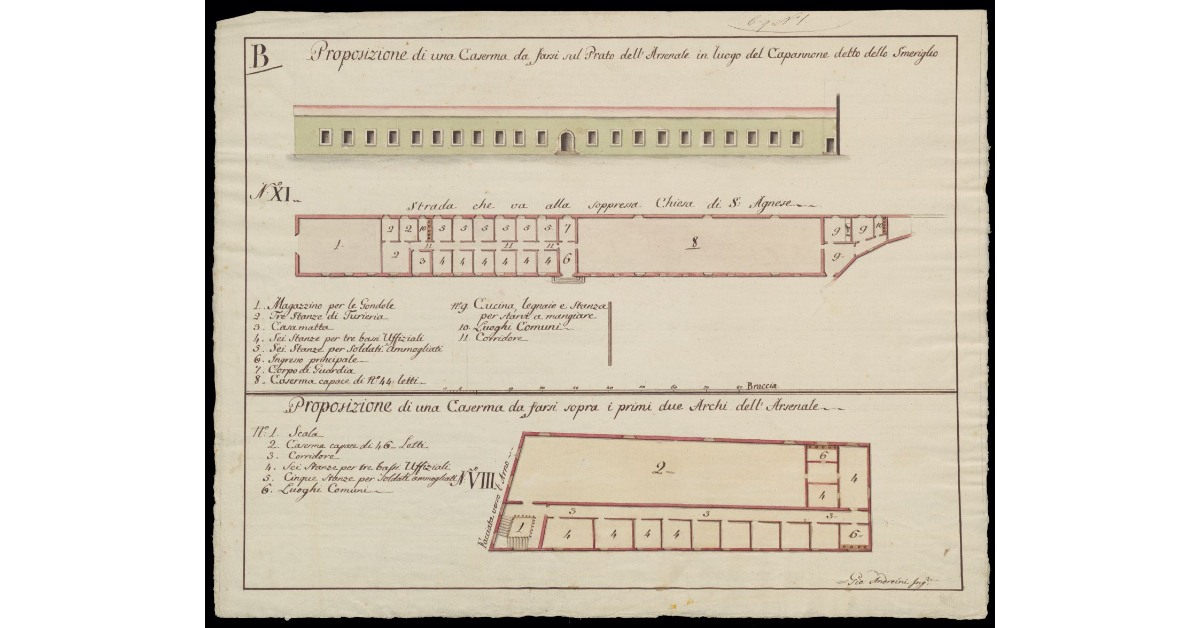 B
Proposizione di una Caserma da farsi sul Prato dell'Arsenale in luogo del Capannone detto dello Smeriglio
N.º XI
Strada che va alla soppressa Chiesa di S: Agnese
1 2 2 10 5 5 5 5 5 5 7 8 9 9 10
11 11 11
2 3 4 4 4 4 4 4 6 9
1. Magazzino per le Gondole
2. Tre Stanze di Furieria
3. Casamatta
4. Sei Stanze per tre bassi Uffiziali
5. Sei Stanze per Soldati ammogliati
6. Ingresso principale
7. Corpo di Guardia
8. Caserma capace di Nº 44: letti
Nº 9. Cucina, legnaie e Stanza
per starvi a mangiare
10. Luoghi Comuni
11. Corridore
Braccia
Proposizione di una Caserma da farsi sopra i primi due Archi dell'Arsenale
Nº: 1. Scala
2. Caserma capace di 46 Letti
3. Corridore
4. Sei Stanze per tre bassi Uffiziali
5. Cinque Stanze per Soldati ammogliati
6. Luoghi Comuni
N.º VIII
Facciata verso l'Arno
2 6 4 4
3 3 3
1 4 4 4 4 6
Gio Andreini Ing.